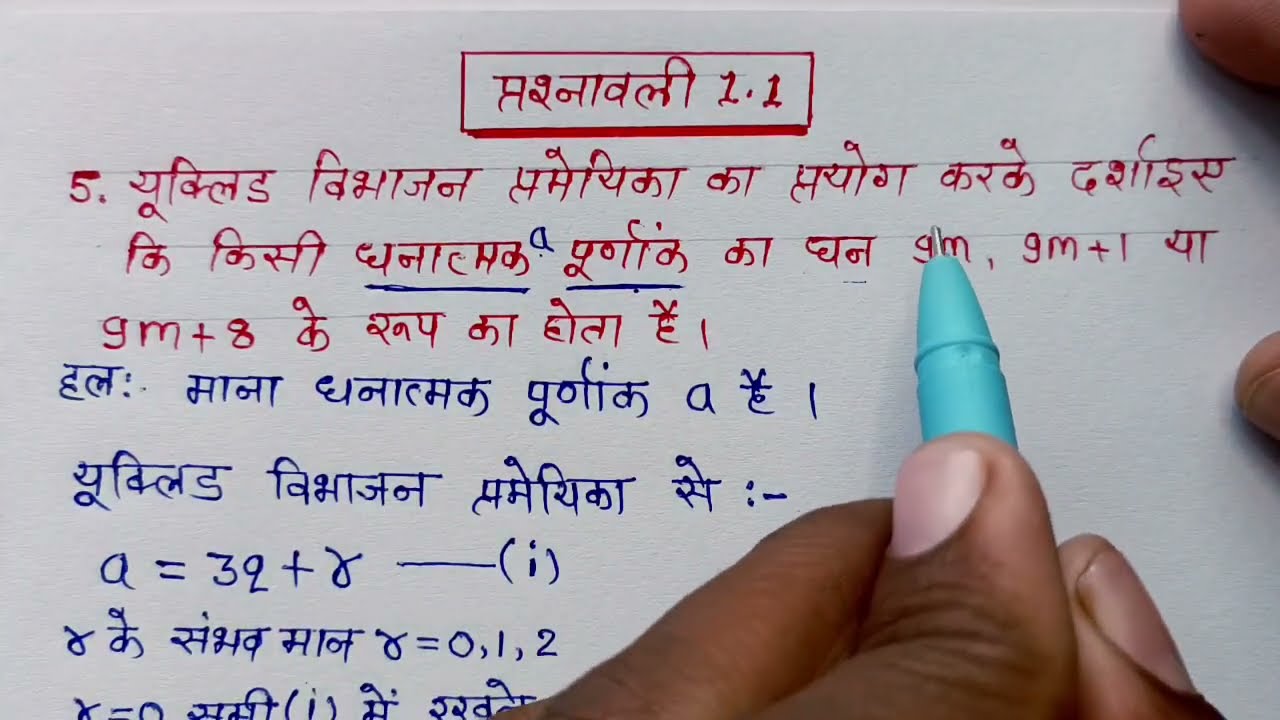 प्रश्नावली 1.1
5. यूक्लिड विभाजन प्रमेयिका का प्रयोग करके दर्शाइए
कि किसी धनात्मक a पूर्णांक का घन 9m, 9m+1 या
9m+8 के रूप का होता है।
हल:- माना धनात्मक पूर्णांक a है।
यूक्लिड विभाजन प्रमेयिका से :-
a = 3q + r —— (i)
r के संभव मान r = 0, 1, 2
r=0 समी (i) में रखने